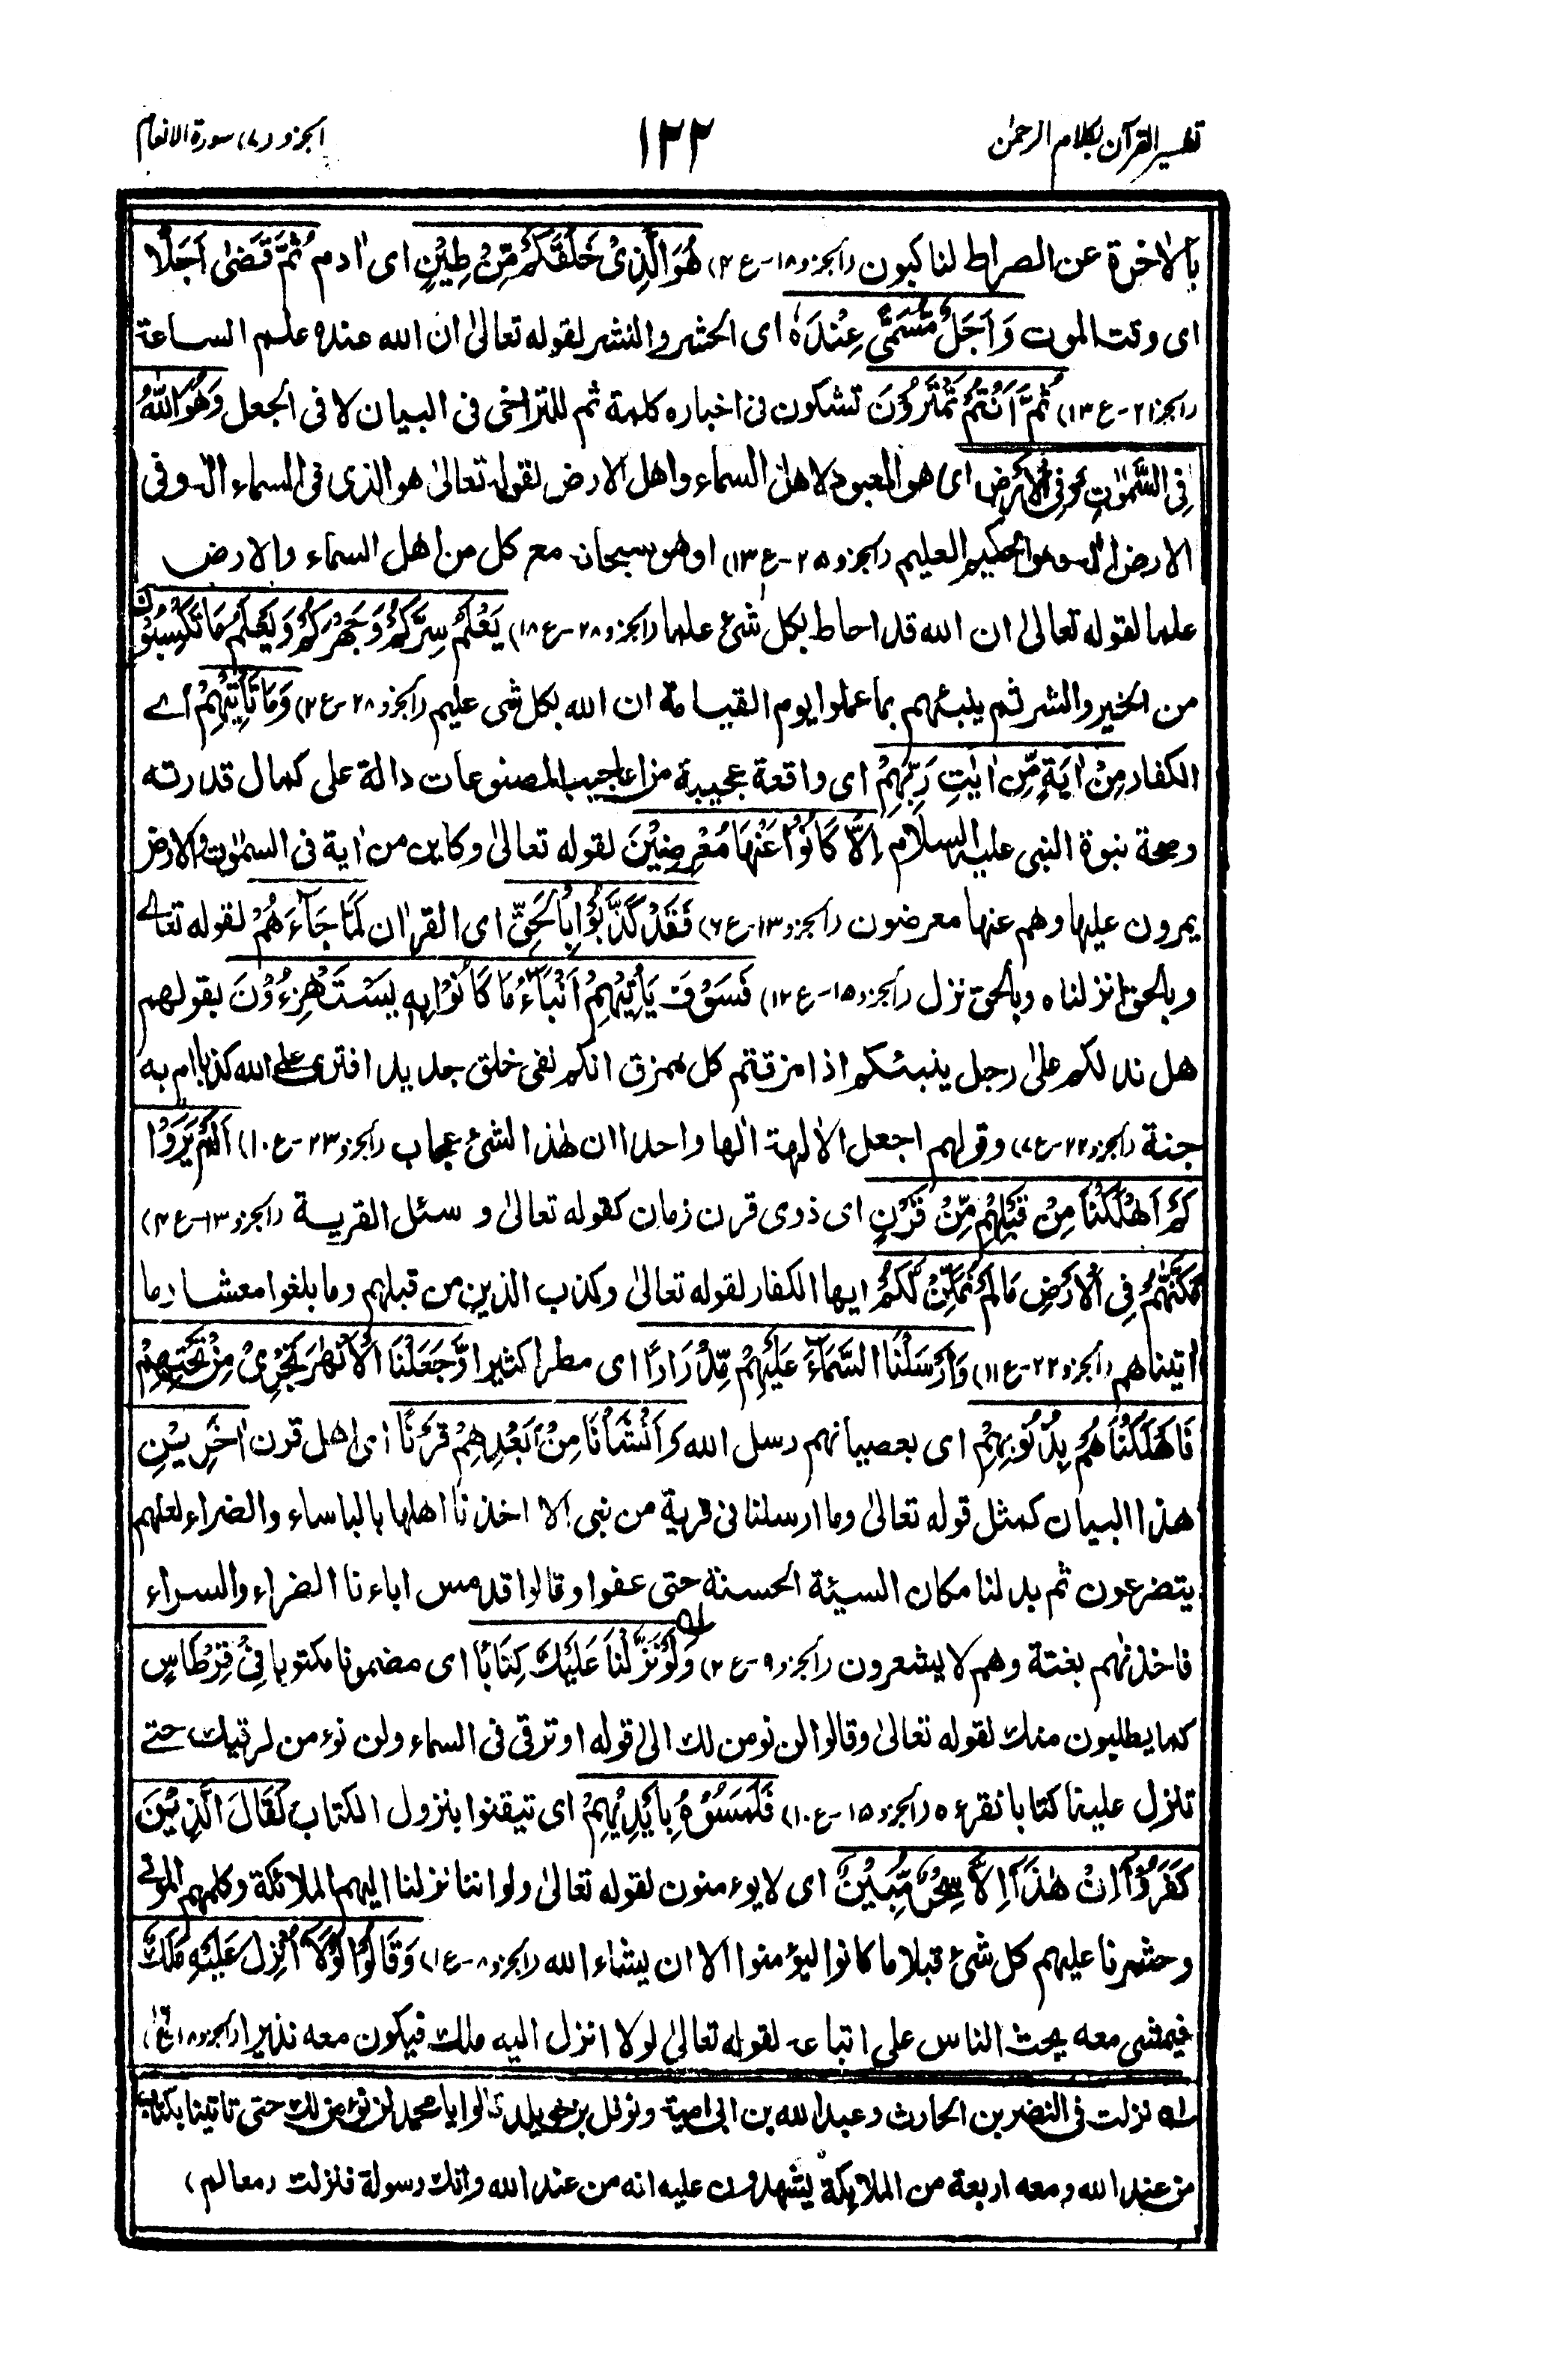 تفسير القرآن بكلام الرحمٰن
١٢٢
الجزو (٧) سورة الانعام
بالاٰخرة عن الصراط لناكبون (الجزو ١٨-ع ٤) هُوَ الَّذِىْ خَلَقَكُمْ مِّنْ طِيْنٍ اى اٰدم ثُمَّ قَضٰى اَجَلًا
اى وقت الموت وَاَجَلٌ مُّسَمًّى عِنْدَهٗ اى الحشر والنشر لقوله تعالىٰ ان الله عنده علم الساعة
(الجزو ٢١-ع ١٣) ثُمَّ اَنْتُمْ تَمْتَرُوْنَ تشكون فى اخباره كلمة ثم للتراخى فى البيان لا فى الجعل وَهُوَ اللّٰهُ
فِى السَّمٰوٰتِ وَفِى الْاَرْضِ اى هو المعبود لاهل السماء واهل الارض لقوله تعالىٰ هو الذى فى السماء الٰه وفى
الارض الٰه وهو الحكيم العليم (الجزو ٢٥-ع ١٣) او هو سبحانه مع كل من اهل السماء والارض
علما لقوله تعالىٰ ان الله قد احاط بكل شئ علما (الجزو ٢٨-ع ١٨) يَعْلَمُ سِرَّكُمْ وَجَهْرَكُمْ وَيَعْلَمُ مَا تَكْسِبُوْنَ
من الخير والشر ثم ينبئهم بما عملوا يوم القيامة ان الله بكل شى عليم (الجزو ٢٨-ع ٢) وَمَا تَاْتِيْهِمْ اے
الكفار مِنْ اٰيَةٍ مِّنْ اٰيٰتِ رَبِّهِمْ اى واقعة عجيبة من اعاجيب المصنوعات دالة على كمال قدرته
وصحة نبوة النبى عليه السلام اِلَّا كَانُوْا عَنْهَا مُعْرِضِيْنَ لقوله تعالىٰ وكاين من اٰية فى السمٰوٰت والارض
يمرون عليها وهم عنها معرضون (الجزو ١٣-ع ٦) فَقَدْ كَذَّبُوْا بِالْحَقِّ اى القراٰن لَمَّا جَآءَهُمْ لقوله تعالے
وبالحق انزلناه وبالحق نزل (الجزو ١٥-ع ١٢) فَسَوْفَ يَاْتِيْهِمْ اَنْبَآءُ مَا كَانُوْا بِهٖ يَسْتَهْزِءُوْنَ بقولهم
هل ندلكم علىٰ رجل ينبئكم اذا مزقتم كل ممزق انكم لفى خلق جديد افترى على الله كذبا ام به
جنة (الجزو ٢٢-ع ٧) وقولهم اجعل الاٰلهة الٰها واحدا ان هٰذا لشئ عجاب (الجزو ٢٣-ع ١٠) اَلَمْ يَرَوْا
كَمْ اَهْلَكْنَا مِنْ قَبْلِهِمْ مِّنْ قَرْنٍ اى ذوى قرن زمان كقوله تعالىٰ و سئل القرية (الجزو ١٣-ع ٤)
مَكَّنّٰهُمْ فِى الْاَرْضِ مَا لَمْ نُمَكِّنْ لَّكُمْ ايها الكفار لقوله تعالىٰ وكذب الذين من قبلهم وما بلغوا معشار ما
اٰتيناهم (الجزو ٢٢-ع ١١) وَاَرْسَلْنَا السَّمَآءَ عَلَيْهِمْ مِّدْرَارًا اى مطرا كثيرا وَّجَعَلْنَا الْاَنْهٰرَ تَجْرِىْ مِنْ تَحْتِهِمْ
فَاَهْلَكْنٰهُمْ بِذُنُوْبِهِمْ اى بعصيانهم رسل الله وَاَنْشَاْنَا مِنْۢ بَعْدِهِمْ قَرْنًا اى اهل قرن اٰخَرِيْنَ
هذا البيان كمثل قوله تعالىٰ وما ارسلنا فى قرية من نبى الا اخذنا اهلها بالباساء والضراء لعلهم
يتضرعون ثم بدلنا مكان السيئة الحسنة حتى عفوا وقالوا قد مس اباءنا الضراء والسراء
فاخذنٰهم بغتة وهم لا يشعرون (الجزو ٩-ع ٢) وَلَوْ نَزَّلْنَا عَلَيْكَ كِتَابًا اى مضمونا مكتوبا فِىْ قِرْطَاسٍ
كما يطلبون منك لقوله تعالىٰ وقالوا لن نومن لك الىٰ قوله او ترقى فى السماء ولن نوءمن لرقيك حتے
تنزل علينا كتابا نقرءه (الجزو ١٥-ع ١٠) فَلَمَسُوْهُ بِاَيْدِيْهِمْ اى تيقنوا بنزول الكتاب لَقَالَ الَّذِيْنَ
كَفَرُوْٓا اِنْ هٰذَآ اِلَّا سِحْرٌ مُّبِيْنٌ اى لا يوءمنون لقوله تعالىٰ ولو اننا نزلنا اليهم الملائكة وكلمهم الموتى
وحشرنا عليهم كل شئ قبلا ما كانوا ليؤمنوا الا ان يشاء الله (الجزو ٨-ع ١) وَقَالُوْا لَوْلَآ اُنْزِلَ عَلَيْهِ مَلَكٌ
فيمشى معه يحث الناس على اتباعه لقوله تعالىٰ لولا انزل اليه ملك فيكون معه نذيرا (الجزو ١٨ع)
لـه نزلت فى النضر بن الحارث وعبد الله بن ابى امية ونوفل بن خويلد قالوا يا محمد لن نؤمن لك حتى تاتينا بكتاب
من عند الله ومعه اربعة من الملايكة يشهدون عليه انه من عند الله وانك رسوله فنزلت (معالم)